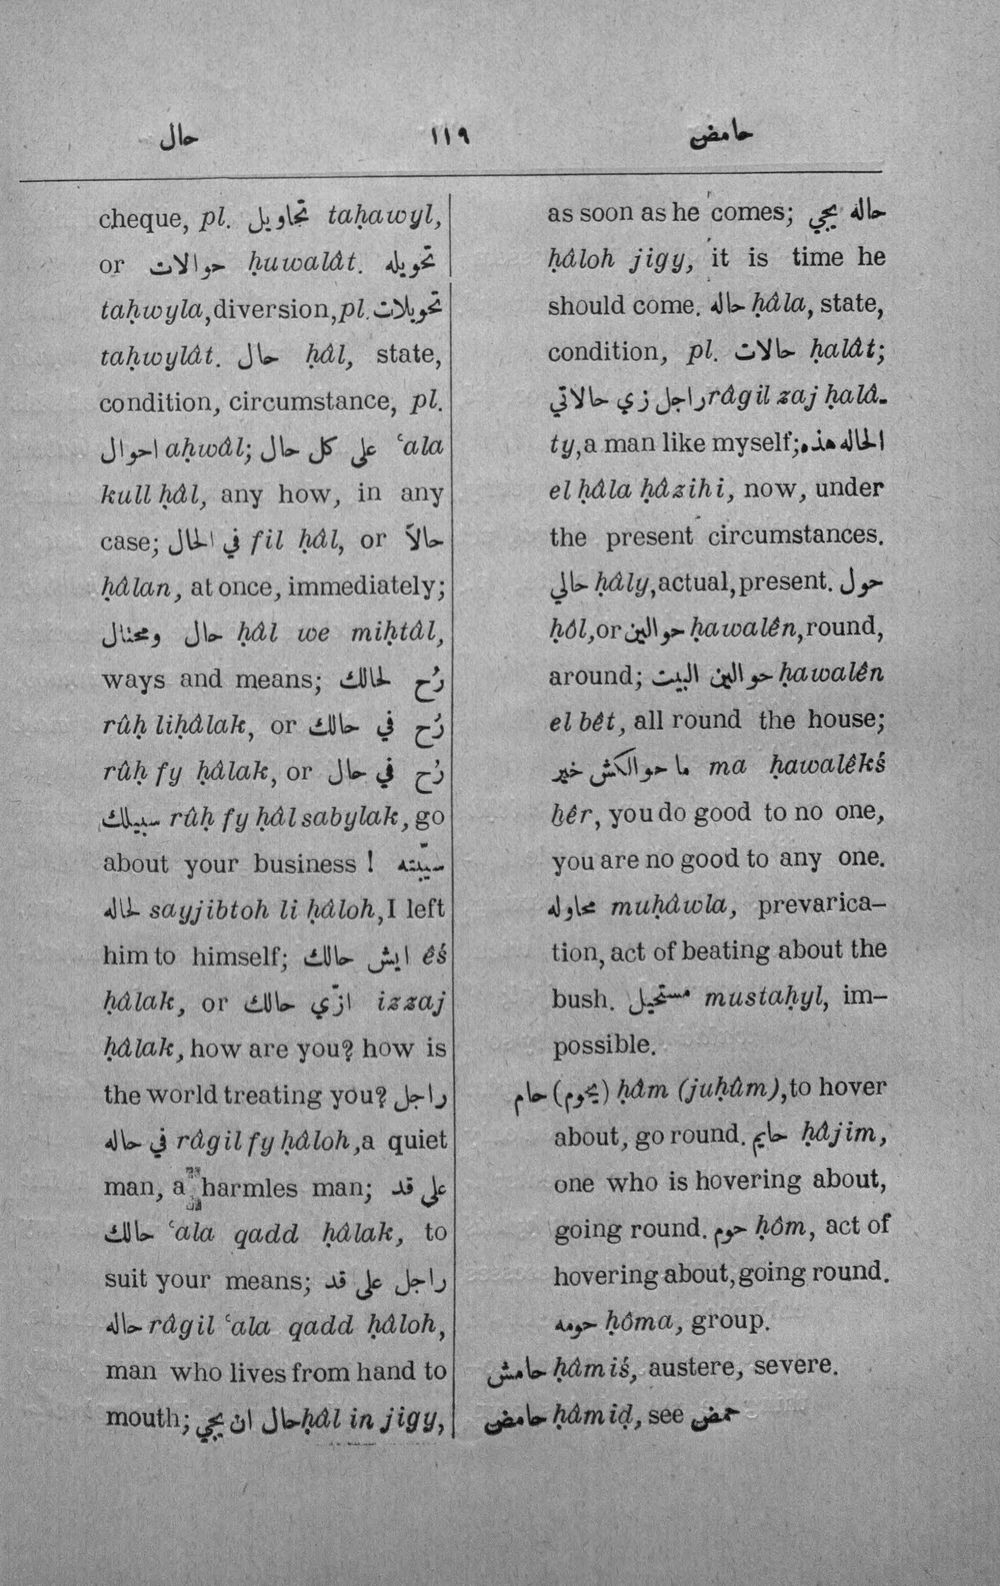 حال ١١٩ حامض
cheque, pl. تحاويل taḥawyl,
or حوالات ḥuwalât. تحويله
taḥwyla, diversion, pl. تحويلات
taḥwylât. حال ḥâl, state,
condition, circumstance, pl.
احوال aḥwâl; على كل حال ʿala
kull ḥâl, any how, in any
case; في الحال fil ḥâl, or حالاً
ḥâlan, at once, immediately;
حال ومحتال ḥâl we miḥtâl,
ways and means; رُح لحالك
rûḥ liḥâlak, or رُح في حالك
rûḥ fy ḥâlak, or رُح في حال
سبيلك rûḥ fy ḥâl sabylak, go
about your business! سيّبته
لحاله sayjibtoh li ḥâloh, I left
him to himself; ايش حالك êś
ḥâlak, or ازّي حالك izzaj
ḥâlak, how are you? how is
the world treating you? راجل
في حاله râgil fy ḥâloh, a quiet
man, a harmles man; على قد
حالك ʿala qadd ḥâlak, to
suit your means; راجل على قد
حاله râgil ʿala qadd ḥâloh,
man who lives from hand to
mouth; حال ان يجي ḥâl in jigy,
as soon as he comes; حاله يجي
ḥâloh jigy, it is time he
should come. حاله ḥâla, state,
condition, pl. حالات ḥalât;
راجل زي حالاتي râgil zaj ḥalâ-
ty, a man like myself; الحاله هذه
el ḥâla ḥâzihi, now, under
the present circumstances.
حالي ḥâly, actual, present. حول
ḥôl, or حوالين ḥawalên, round,
around; حوالين البيت ḥawalên
el bêt, all round the house;
ما حوالكش خير ma ḥawalêkś
ḫêr, you do good to no one,
you are no good to any one.
محاوله muḥâwla, prevarica-
tion, act of beating about the
bush. مستحيل mustaḥyl, im-
possible.
حام (يحوم) ḥâm (juḥûm), to hover
about, go round. حايم ḥâjim,
one who is hovering about,
going round. حوم ḥôm, act of
hovering about, going round.
حومه ḥôma, group.
حامش ḥâmiś, austere, severe.
حامض ḥâmiḍ, see حمض